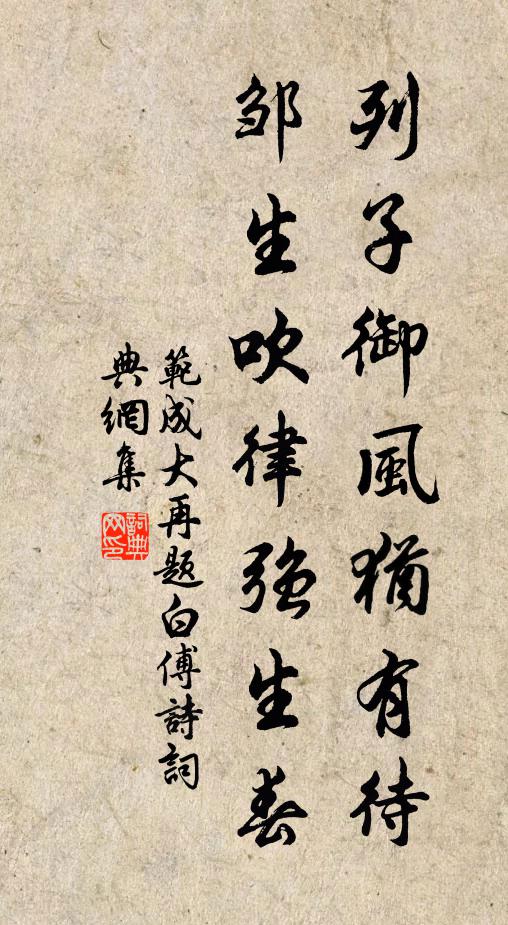 列子御風猶有待
邹生吹律強生春
範成大再题白傅詩詞
典網集
詞典网印